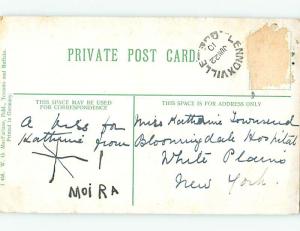 PRIVATE POST CARD
LENNOXVILLE QUE.
JUN 22
10
THIS SPACE MAY BE USED
FOR CORRESPONDENCE
THIS SPACE IS FOR ADDRESS ONLY.
A kiss for
Katharine from
MOIRA
Miss Katharine Townsend
Bloomingdale Hospital
White Plains
New York.
Toronto and Buffalo.
Printed in Germany.